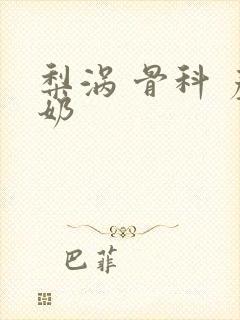 梨涡 骨科
奶
巴菲